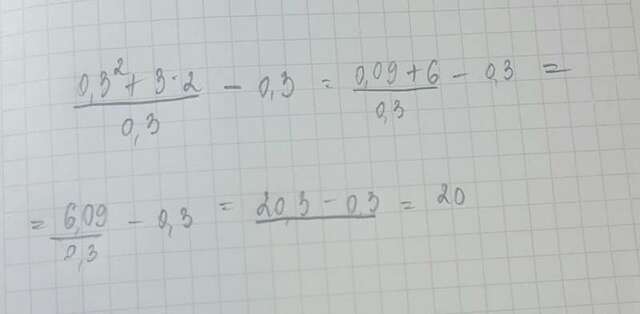 (0,3² + 3·2)/0,3 - 0,3 = (0,09 + 6)/0,3 - 0,3 =
= 6,09/0,3 - 0,3 = 20,3 - 0,3 = 20